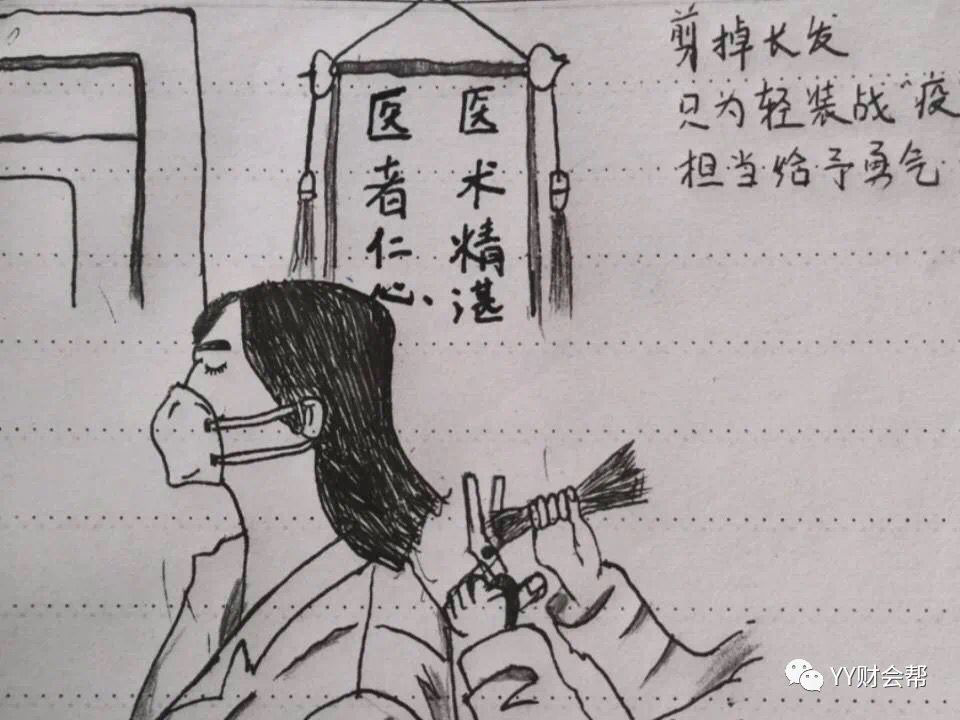 剪掉长发
只为轻装战"疫
担当给予勇气
医术精湛
医者仁心、
YY财会帮